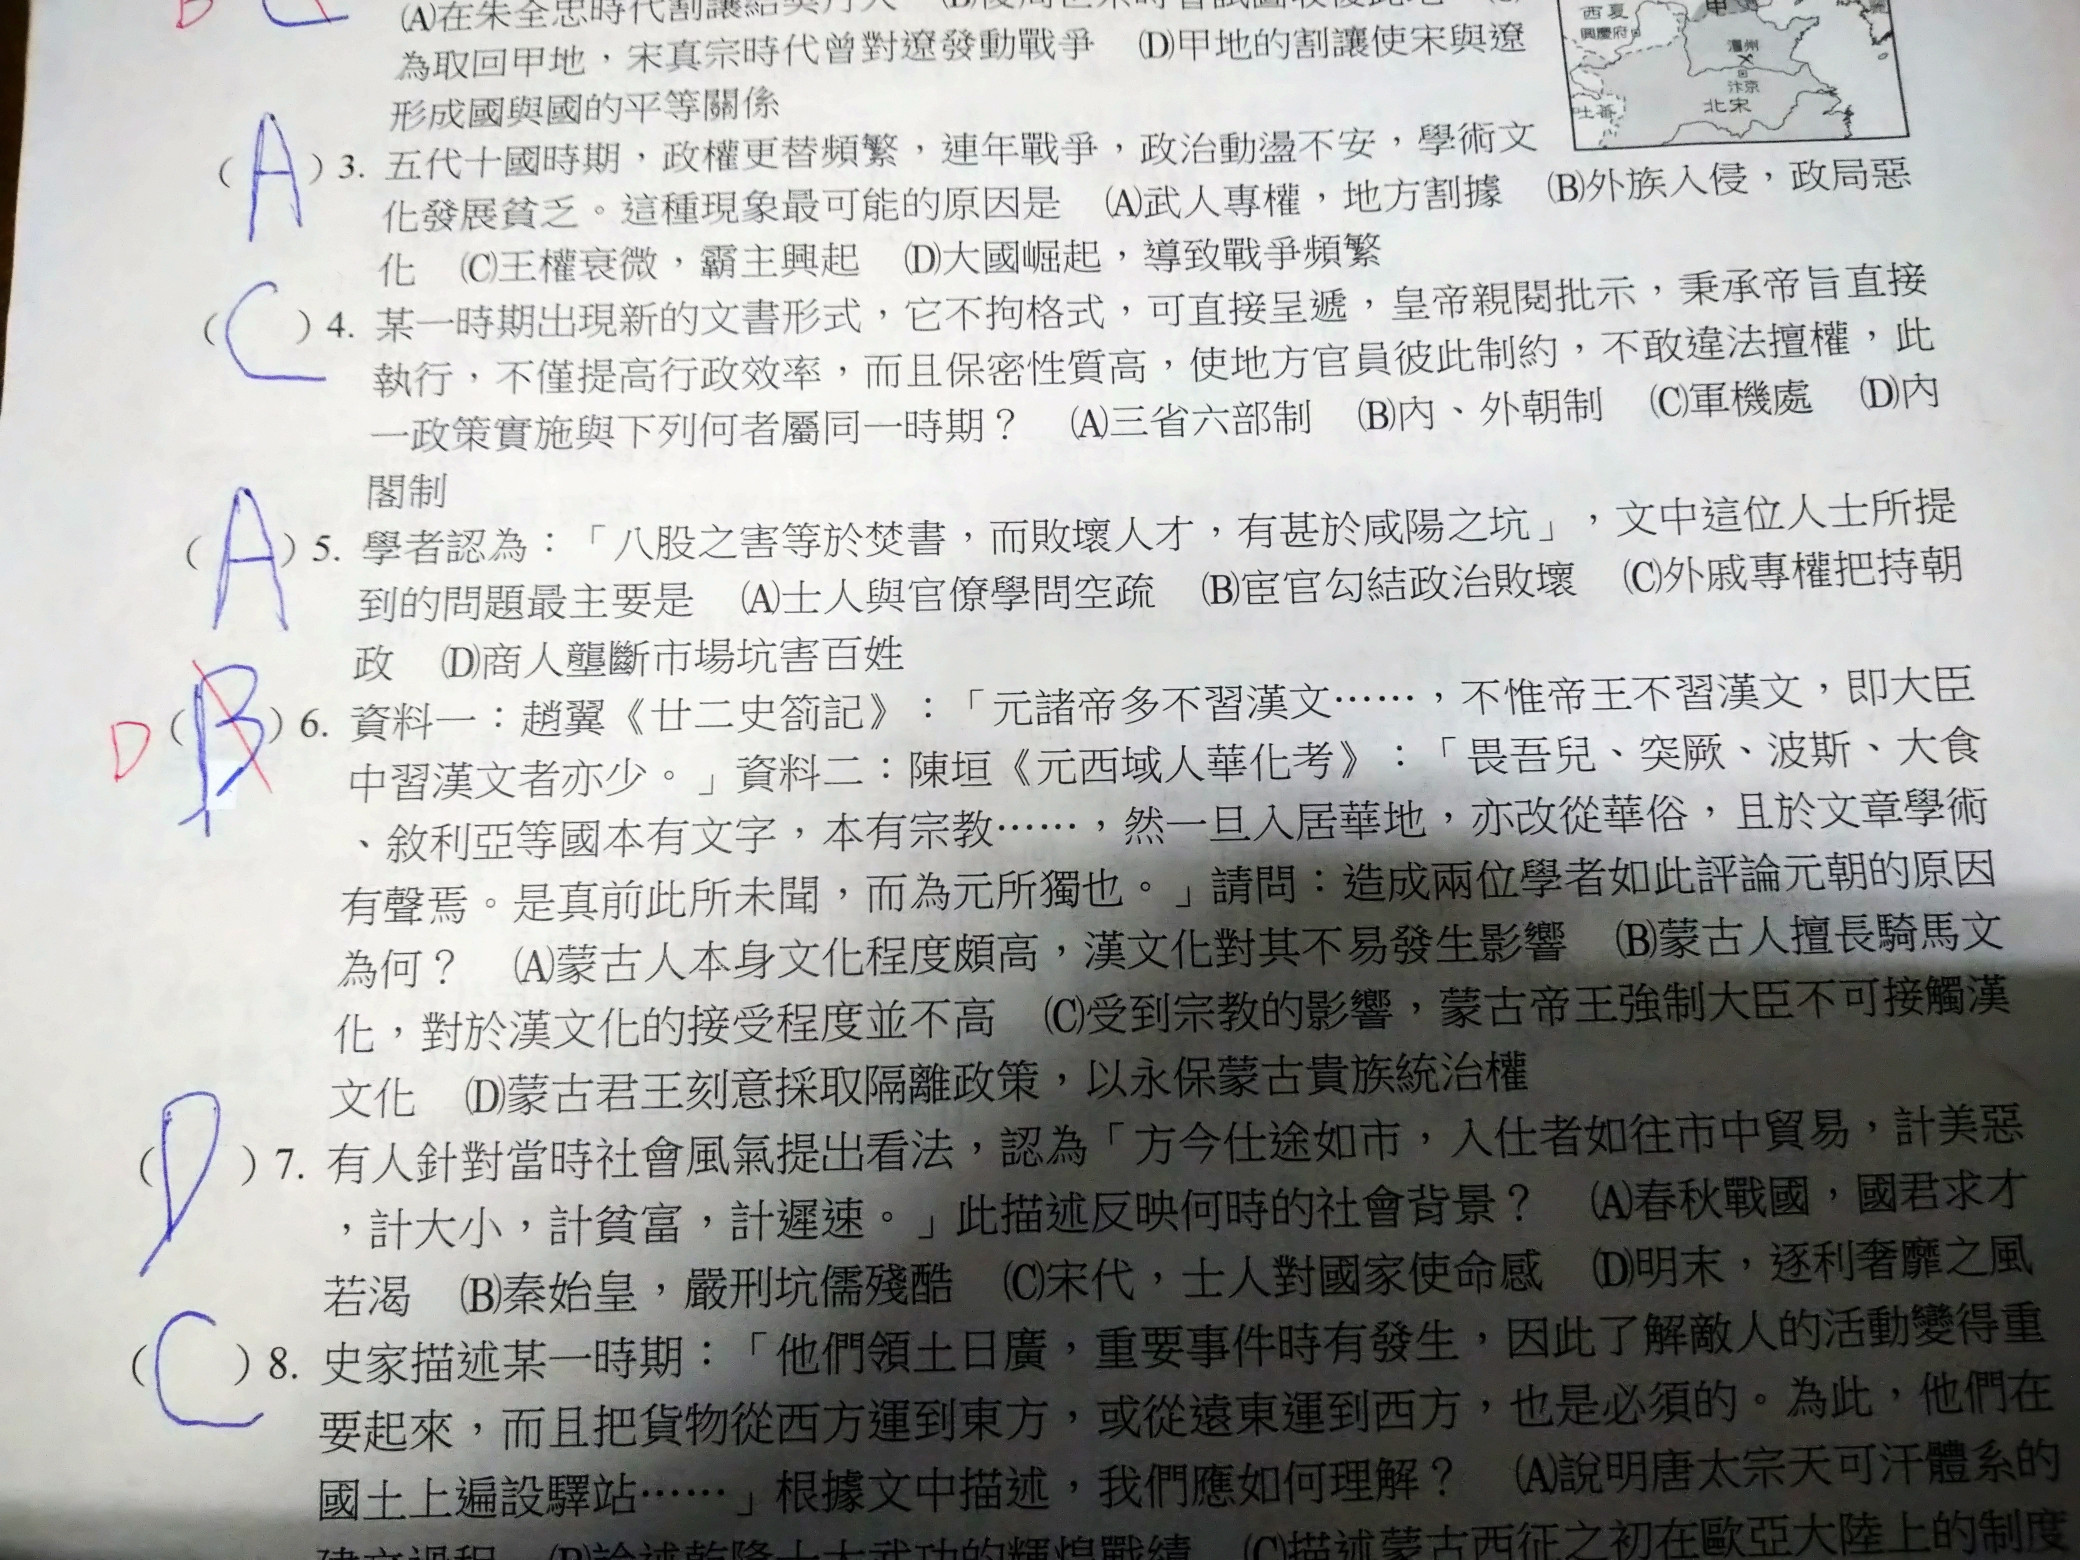 (A)在朱全忠時代割讓給契丹人
為取回甲地，宋真宗時代曾對遼發動戰爭　(D)甲地的割讓使宋與遼
形成國與國的平等關係
西夏
興慶府
澶州
汴京
北宋
吐蕃
(A)3. 五代十國時期，政權更替頻繁，連年戰爭，政治動盪不安，學術文
化發展貧乏。這種現象最可能的原因是　(A)武人專權，地方割據　(B)外族入侵，政局惡
化　(C)王權衰微，霸主興起　(D)大國崛起，導致戰爭頻繁
(C)4. 某一時期出現新的文書形式，它不拘格式，可直接呈遞，皇帝親閱批示，秉承帝旨直接
執行，不僅提高行政效率，而且保密性質高，使地方官員彼此制約，不敢違法擅權，此
一政策實施與下列何者屬同一時期？　(A)三省六部制　(B)內、外朝制　(C)軍機處　(D)內
閣制
(A)5. 學者認為：「八股之害等於焚書，而敗壞人才，有甚於咸陽之坑」，文中這位人士所提
到的問題最主要是　(A)士人與官僚學問空疏　(B)宦官勾結政治敗壞　(C)外戚專權把持朝
政　(D)商人壟斷市場坑害百姓
D(B)6. 資料一：趙翼《廿二史箚記》：「元諸帝多不習漢文……，不惟帝王不習漢文，即大臣
中習漢文者亦少。」資料二：陳垣《元西域人華化考》：「畏吾兒、突厥、波斯、大食
、敘利亞等國本有文字，本有宗教……，然一旦入居華地，亦改從華俗，且於文章學術
有聲焉。是真前此所未聞，而為元所獨也。」請問：造成兩位學者如此評論元朝的原因
為何？　(A)蒙古人本身文化程度頗高，漢文化對其不易發生影響　(B)蒙古人擅長騎馬文
化，對於漢文化的接受程度並不高　(C)受到宗教的影響，蒙古帝王強制大臣不可接觸漢
文化　(D)蒙古君王刻意採取隔離政策，以永保蒙古貴族統治權
(D)7. 有人針對當時社會風氣提出看法，認為「方今仕途如市，入仕者如往市中貿易，計美惡
，計大小，計貧富，計遲速。」此描述反映何時的社會背景？　(A)春秋戰國，國君求才
若渴　(B)秦始皇，嚴刑坑儒殘酷　(C)宋代，士人對國家使命感　(D)明末，逐利奢靡之風
(C)8. 史家描述某一時期：「他們領土日廣，重要事件時有發生，因此了解敵人的活動變得重
要起來，而且把貨物從西方運到東方，或從遠東運到西方，也是必須的。為此，他們在
國土上遍設驛站……」根據文中描述，我們應如何理解？　(A)說明唐太宗天可汗體系的
建立過程　(B)論述乾隆十大武功的輝煌戰績　(C)描述蒙古西征之初在歐亞大陸上的制度